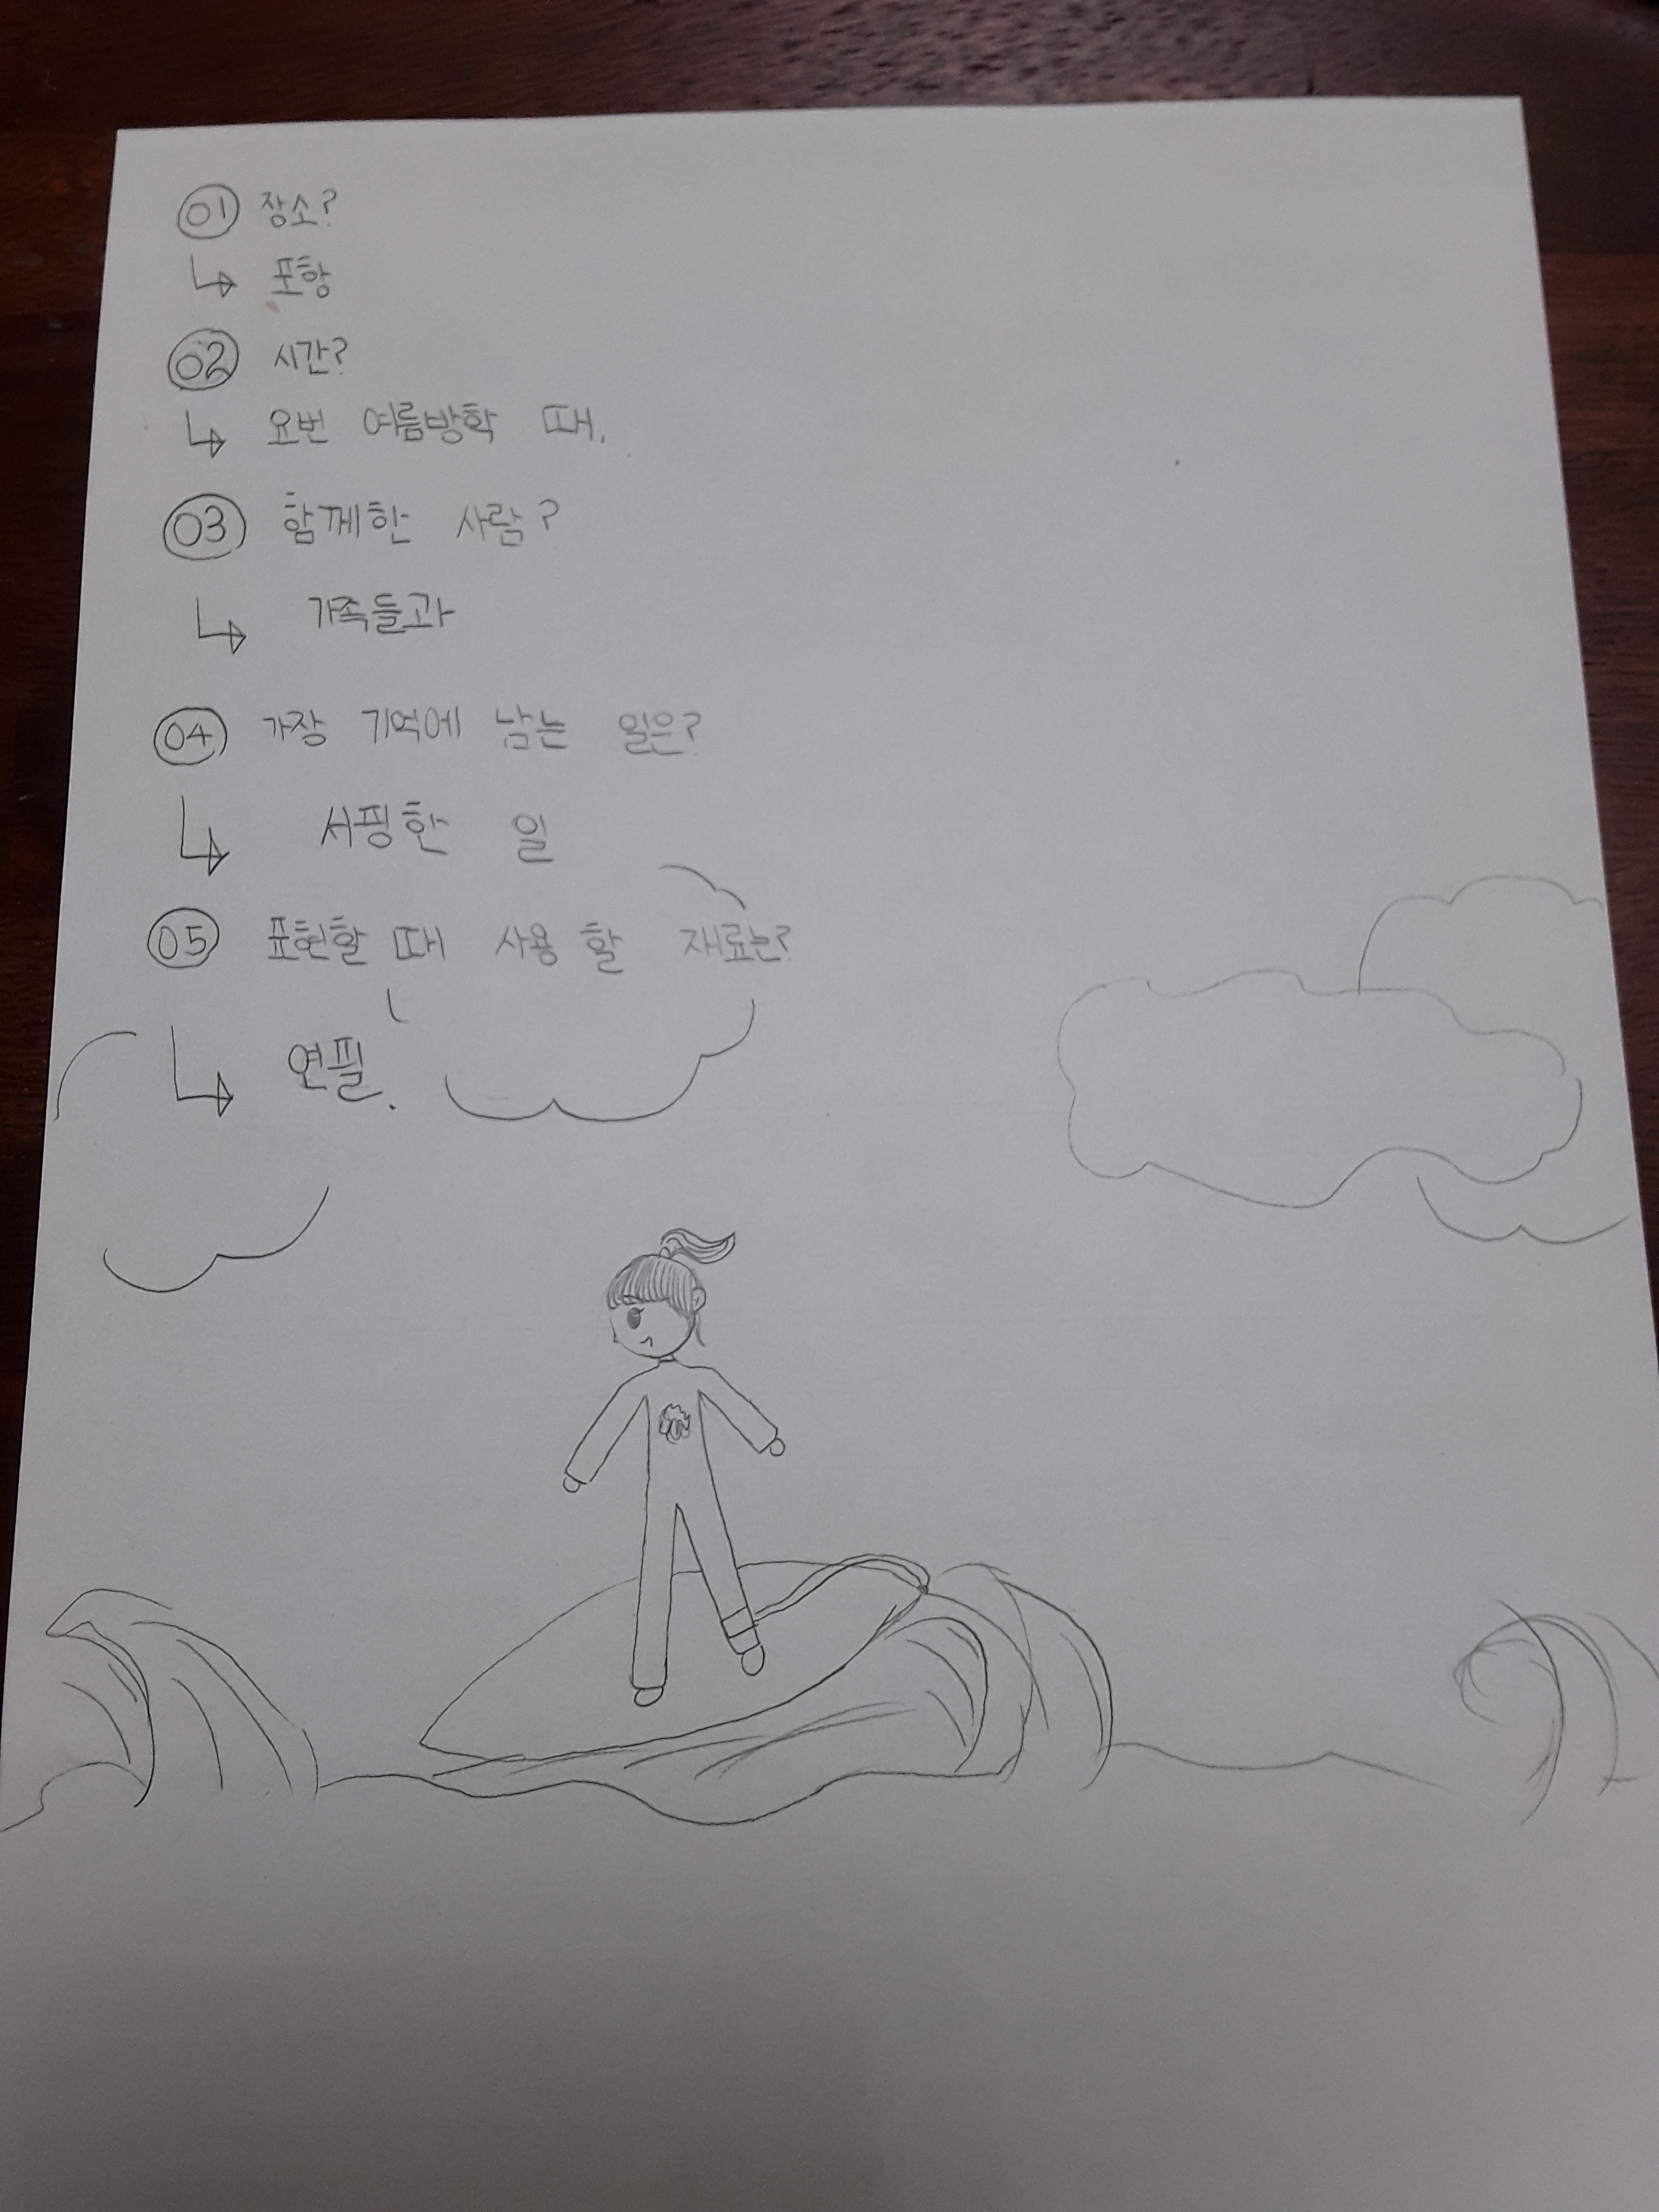 01 장소?
↳ 포항
02 시간?
↳ 요번 여름방학 때.
03 함께한 사람?
↳ 가족들과
04 가장 기억에 남는 일은?
↳ 서핑한 일
05 표현할 때 사용 할 재료는?
↳ 연필.